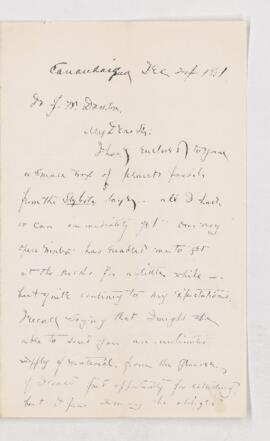 Canandaigua Dec 24 1881
Dr J. W. Dawson
My Dear Sir:
I have enclosed to you
a small box of plants fossils
from the Styliola layer — all I had
or can immediately get. Our very
open winter has enabled me to get
at the rocks for a little while —
but quite contrary to my expectations.
I recall saying that I might be
able to send you an
supply of material, from the
of first opportunity for collecting,
but I fear I may be obliged